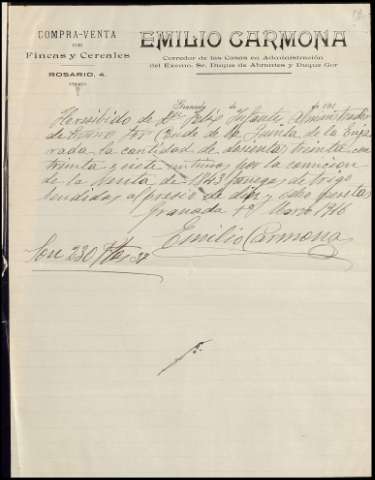 COMPRA-VENTA
DE
Fincas y Cereales
ROSARIO, 4.
EMILIO CARMONA
Corredor de las Casas en Administración
del Excmo. Sr. Duque de Abrantes y Duque Gor
Granada de de 191
He recibido de Dn Felix Infante, Administrador
de Conde de la Puebla de la
la cantidad de doscientas treinta con
treinta y siete por la comision
de la venta de 1843 fanegas de trigo
bendidas al presio de diez y ocho pesetas
Granada Marzo 1916
Emilio Carmona
Son 230 Ptas 37